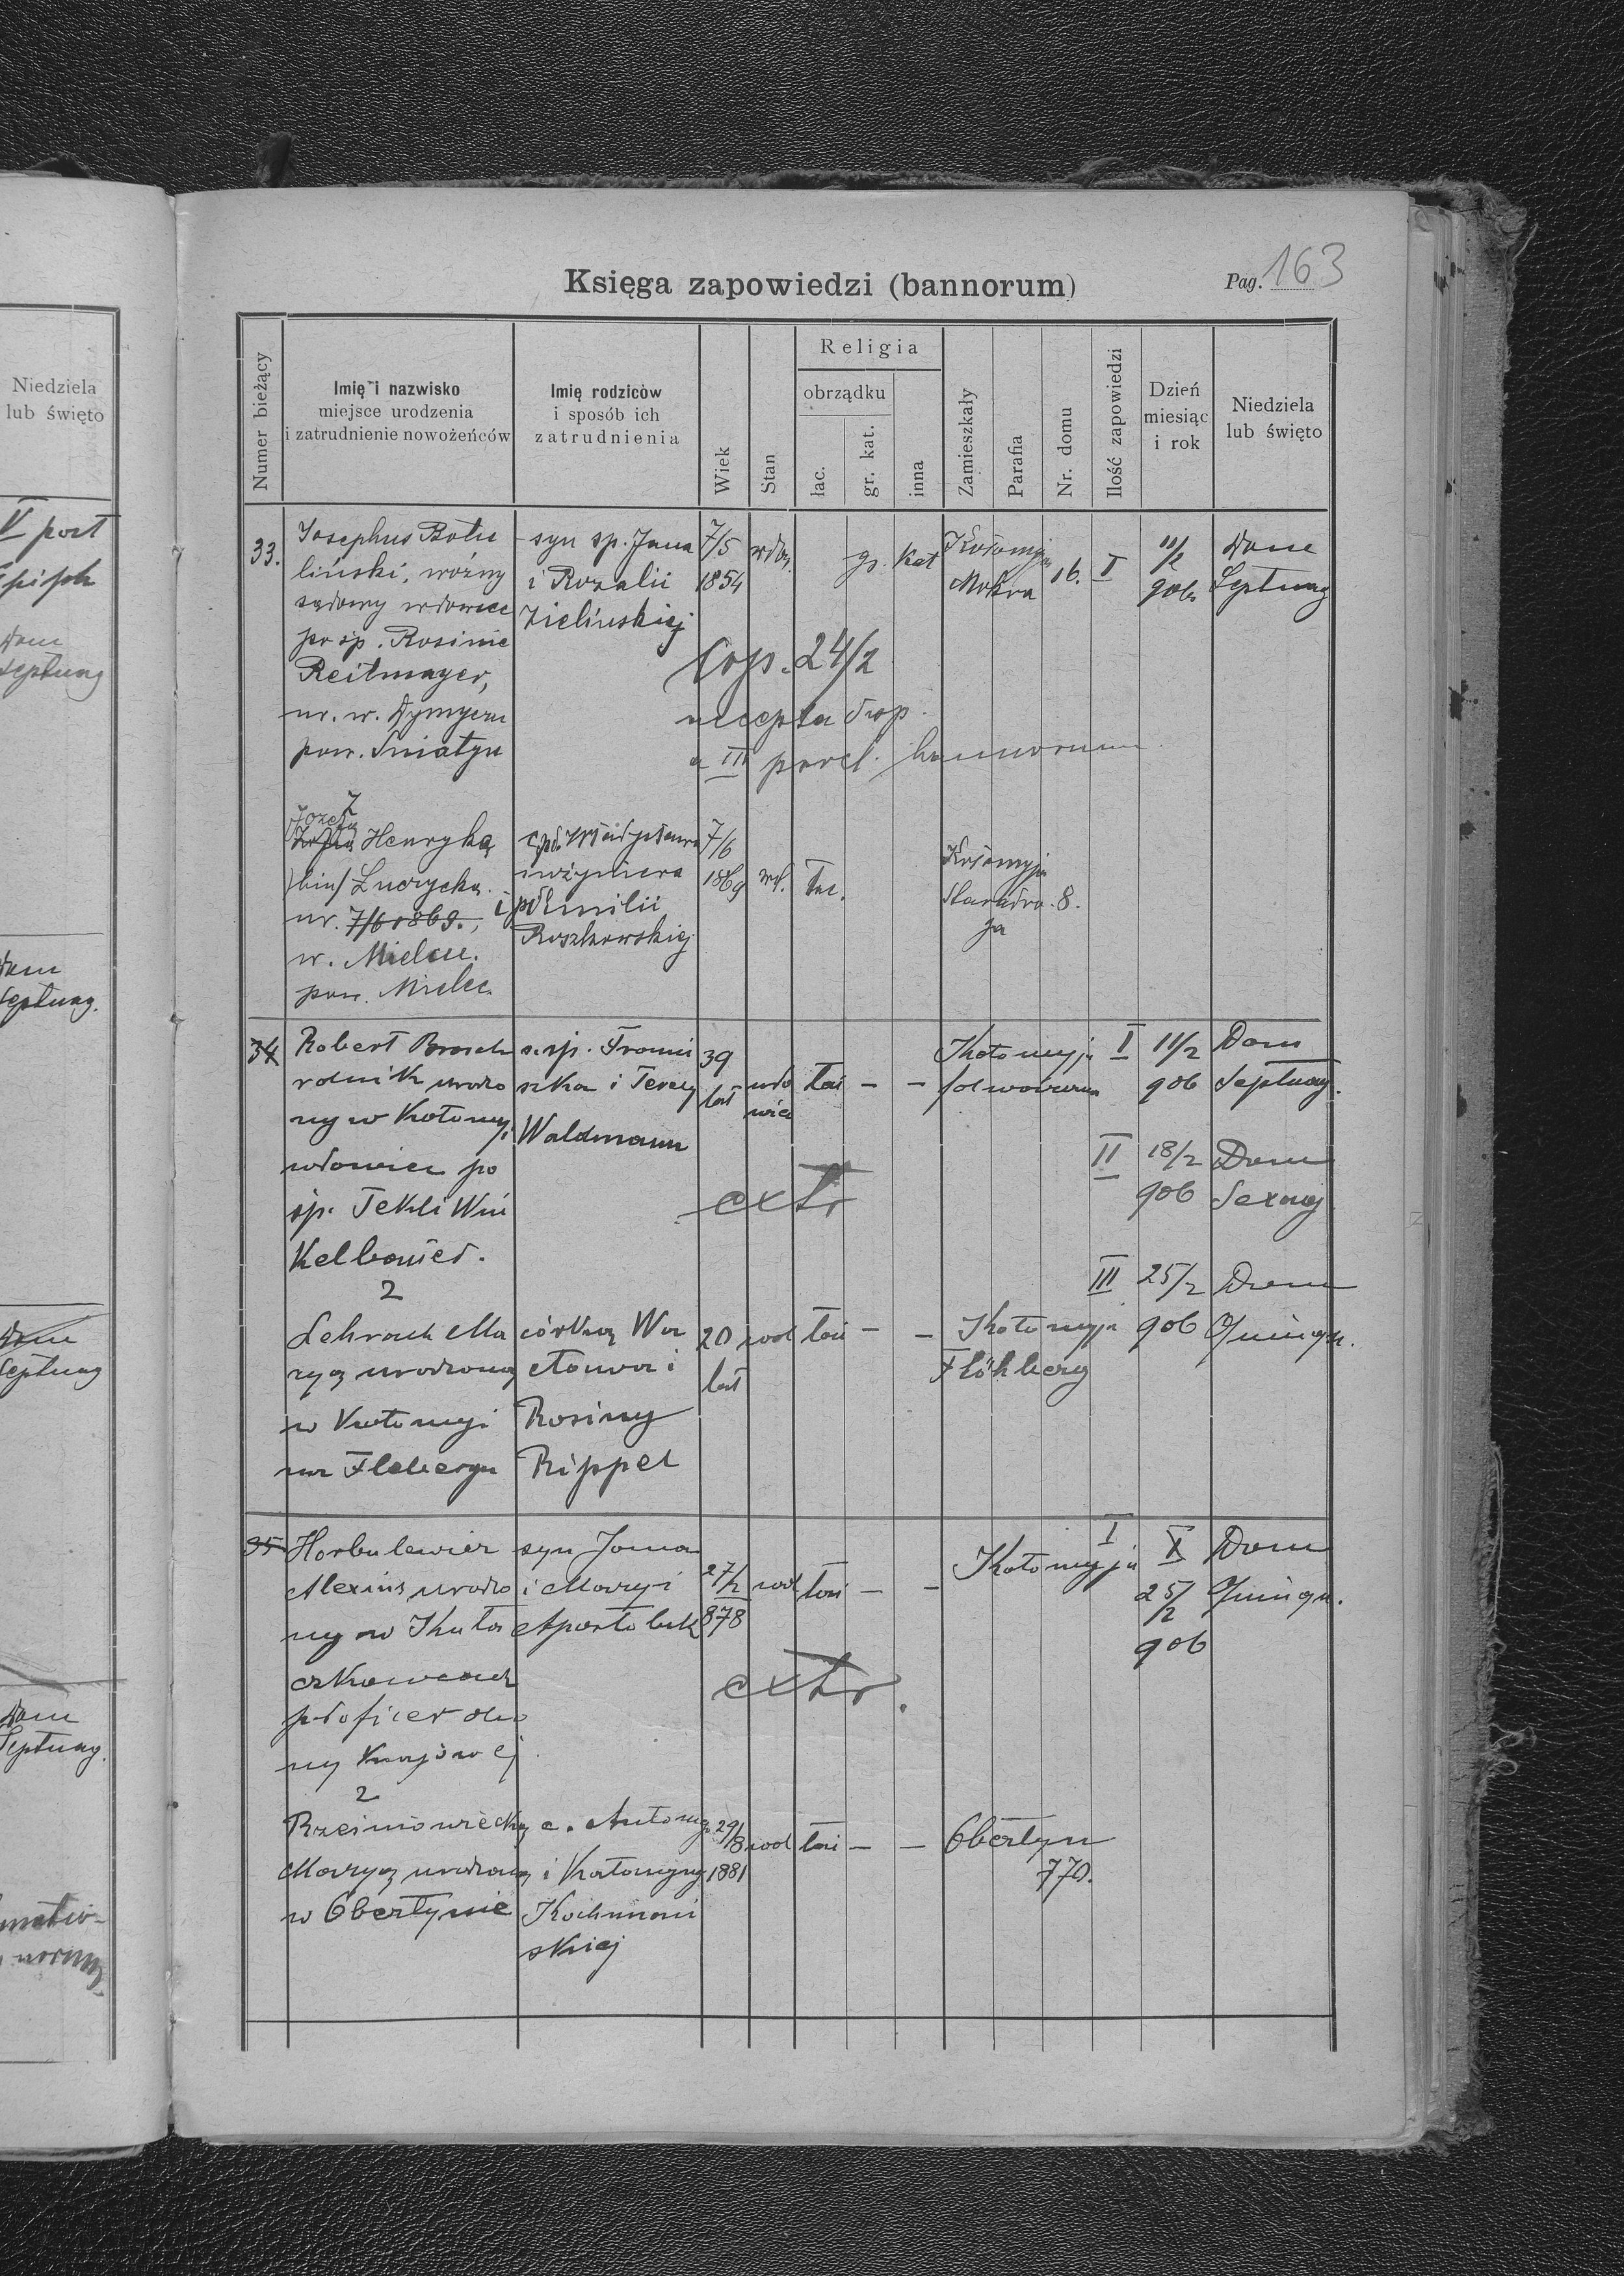 Niedziela
lub święto
V post
Epiph
Dom
Septuag
Dom
Septuag.
Dom
Septuag
Dom
Septuag.
Księga zapowiedzi (bannorum)
Pag. 163
Numer bieżący
Imię i nazwisko
miejsce urodzenia
i zatrudnienie nowożeńców
Imię rodziców
i sposób ich
zatrudnienia
Wiek
Stan
Religia
obrządku
łac.
gr. kat.
inna
Zamieszkały
Parafia
Nr. domu
Ilość zapowiedzi
Dzień
miesiąc
i rok
Niedziela
lub święto
33.
Josephus Botu
liński, woźny
sądowy wdowiec
po śp. Rosinie
Reitmayer,
ur. w.
pow. Śniatyn
syn śp. Jana
i Rozalii
Zielińskiej
7/5
1854
wdow.
gr. kat
Kołomyja
Mokra
16.
I
11/2
906.
Dom
Septuag
Cop. 24/2
accepta disp.
a III procl. bannorum
z
Józefą
Henryką
/bin/
ur. 7/6 1869.,
w. Mielcu.
pow. Mielec
Władysława
inżyniera
i Emilii
Roszkowskiej
7/6
1869
wd.
łac.
Kołomyja
8.
34
Robert Brosch
rolnik urodzo
ny w Kołomyi
wdowiec po
śp. Tekli Win
Kelbauer.
s. śp. Franci
szka i Teresy
Waldmann
39
lat
wdo
wiec
łać
-
-
Kołomyja
I
11/2
906
Dom
Septuag.
II
18/2
906
Dom
Sexag
extr
III
25/2
906
Dom
Quinqu.
z
Schrach Ma
ryą urodzoną
w Kołomyi
na Flebergu
córką Wa
cława i
Rosiny
Rippel
20
lat
wol
łać
-
-
Kołomyja
Flöhberg
35
Horbulewicz
Alexius urodzo
ny w Kuta
czkowcach
podoficer obro
ny krajowej
syn Jana
i Maryi
Apostoluk
27/2
878
wol
łać
-
-
Kołomyja
I
X
25/2
906
Dom
Quinqu.
extr.
z
Maryą urodzoną
w Obertynie
c. Antoniego
i Katarzyny
skiej
29/8
1881
wol
łać
-
-
Obertyn
770.